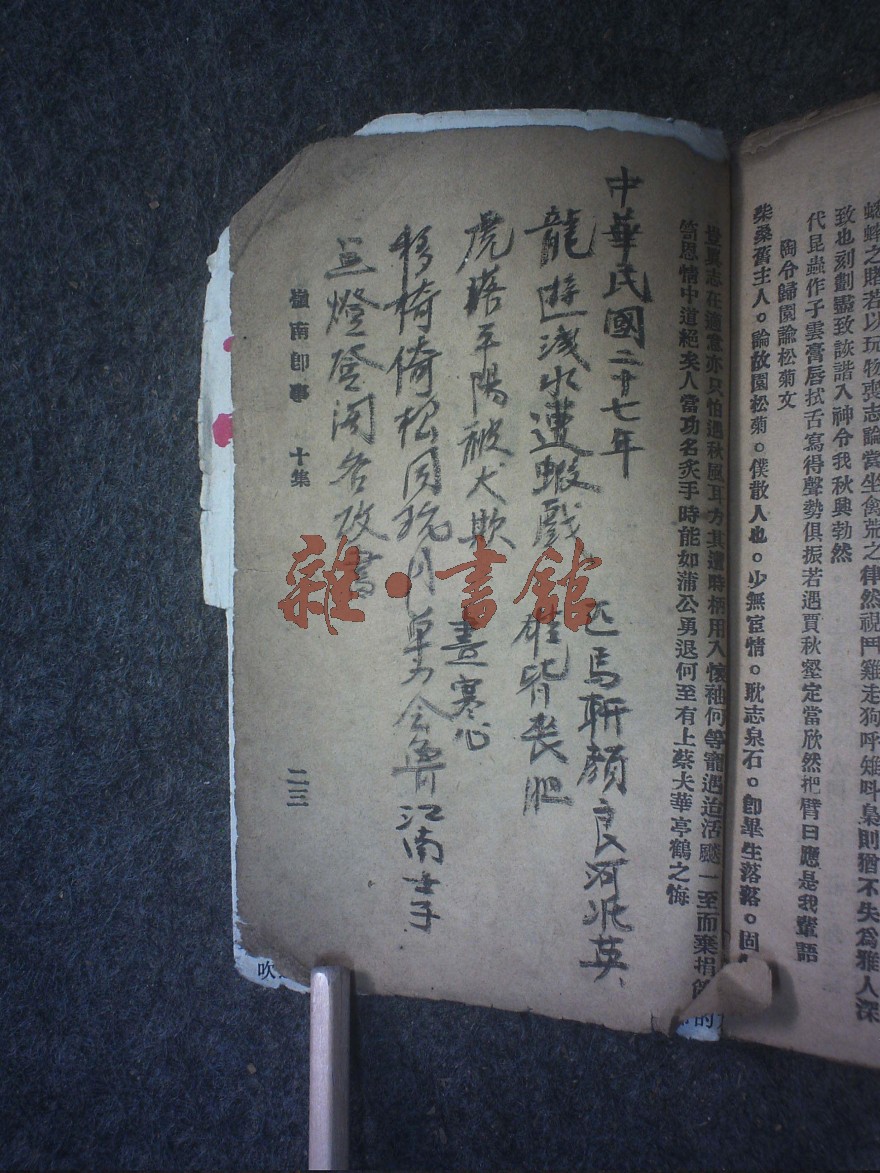 蟋蟀之賭若以玩物喪志論當坐禽荒之律然視鬥雞走狗呼雉呌梟則猶不失爲雅人深
致也刻劃盡致詼諧入神令我秋興勃然
代昆蟲作子雲膏唇拭舌寫得聲勢俱振若遇賈秋壑定當欣然把臂曰應是我輩語
陶令歸園諭松菊文
柴桑舊主人。諭故園松菊。僕散人也。少無宦情。耽志泉石。卽畢生落落。固
志在適意亦只怕過秋風耳方其遭時柄用入懷袖何等寵遇迨活颷一至而棄捐
笥恩情中道絕矣人當功名炙手時能如蒲公勇退何至有上蔡犬華亭鶴之悔
中華民國二十七年
匹馬斬顏良河北英
龍遊淺水遭蝦戲
雄皆喪胆
虎落平陽被犬欺
晝寒心
移椅倚松同玩月
單刀会魯江南士子
登閣各攻書
嶺南卽事
十集
二三
吹
的
雜·書館